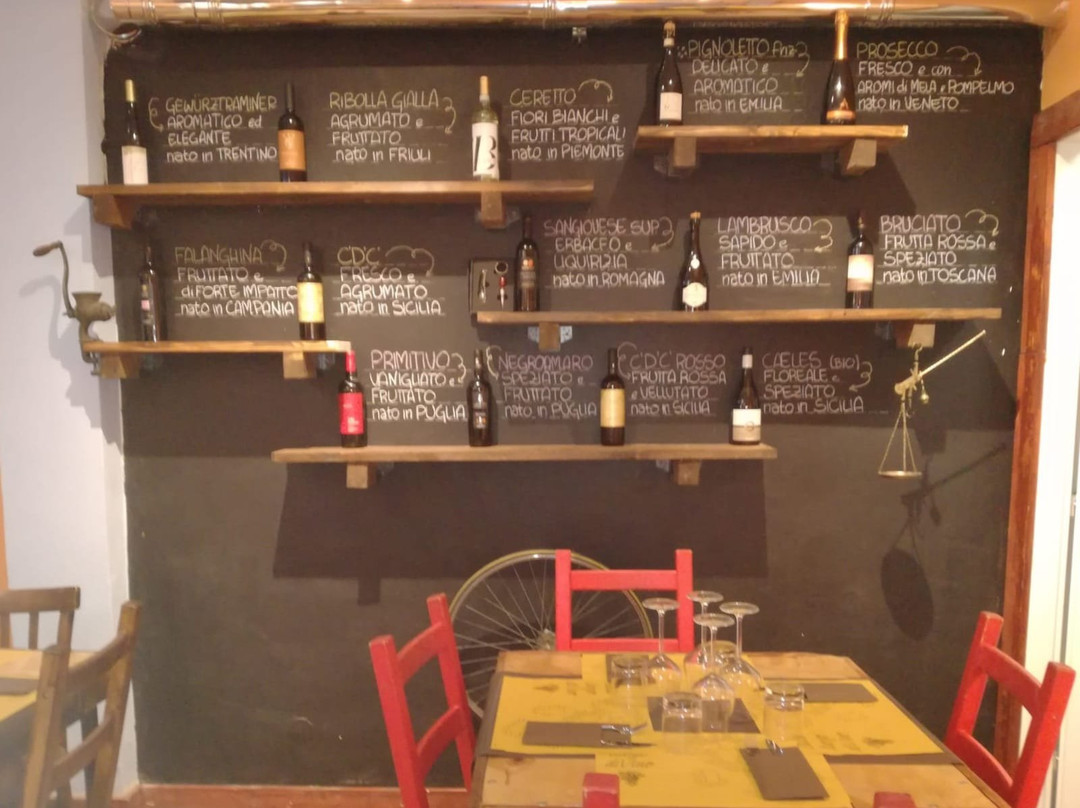 GEWÜRZTRAMINER
AROMATICO ed
ELEGANTE
nato in TRENTINO
RIBOLLA GIALLA
AGRUMATO e
FRUTTATO
nato in FRIULI
CERETTO
FIORI BIANCHI e
FRUTTI TROPICALI
nato in PIEMONTE
PIGNOLETTO
DELICATO e
AROMATICO
nato in EMILIA
PROSECCO
FRESCO e con
AROMI di MELA e POMPELMO
nato in VENETO
FALANGHINA
FRUTTATO e
di FORTE IMPATTO
nato in CAMPANIA
C'D'C'
FRESCO e
AGRUMATO
nato in SICILIA
SANGIOVESE SUP
ERBACEO e
LIQUIRIZIA
nato in ROMAGNA
LAMBRUSCO
SAPIDO e
FRUTTATO
nato in EMILIA
BRUCIATO
FRUTTA ROSSA e
SPEZIATO
nato in TOSCANA
PRIMITIVO
VANIGLIATO e
FRUTTATO
nato in PUGLIA
NEGROAMARO
SPEZIATO e
FRUTTATO
nato in PUGLIA
C'D'C' ROSSO
FRUTTA ROSSA
e VELLUTATO
nato in SICILIA
CAELES (BIO)
FLOREALE e
SPEZIATO
nato in SICILIA